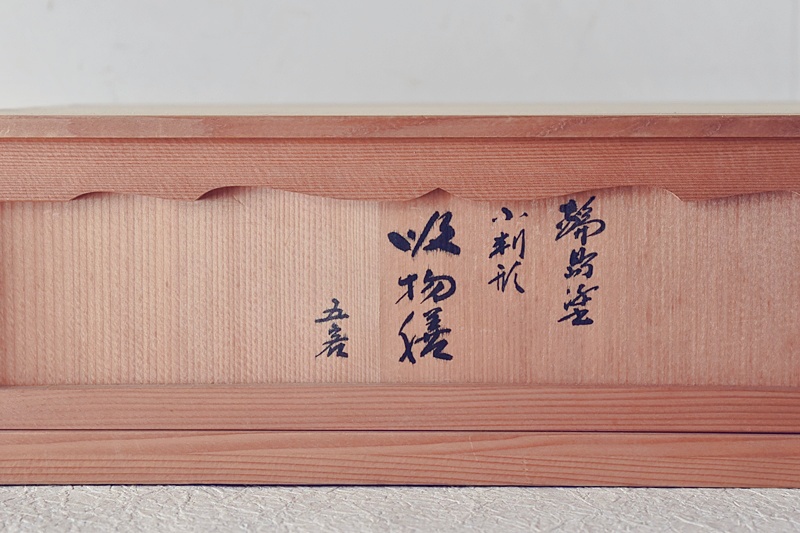 輪島塗
小判形
吸物膳
五客